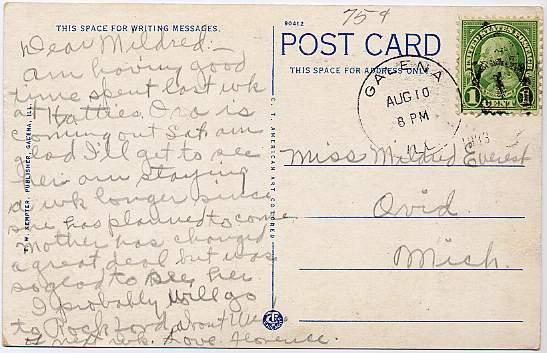 THIS SPACE FOR WRITING MESSAGES.
Dear Mildred:-
Am having good
time spent last wk
at Hatties. Ora is
coming out Sat. am
glad I'll get to see
her am staying
a wk longer since
she has planned to come
Mother has changed
a great deal but was
so glad to see her
I probably will go
to Rockford about Wed
of next wk. Love. Florence.
W. KEMPTER, PUBLISHER, GALENA, ILL.
C. T. AMERICAN ART COLORED
90412
75¢
POST CARD
THIS SPACE FOR ADDRESS ONLY.
GALENA
AUG 10
8 PM
ILL.
UNITED STATES POSTAGE
1 CENT 1
Miss Mildred Everest
Ovid.
Mich.